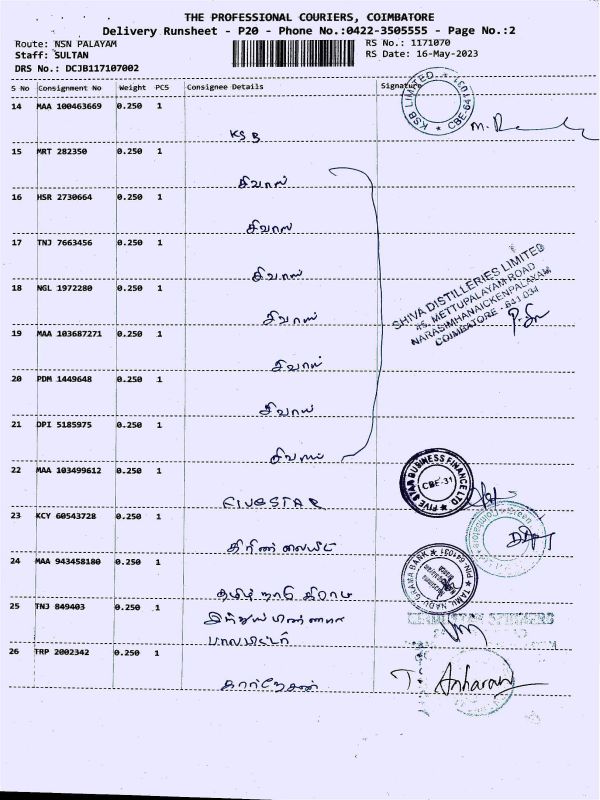 THE PROFESSIONAL COURIERS, COIMBATORE
Delivery Runsheet - P20 - Phone No.:0422-3505555 - Page No.:2
Route: NSN PALAYAM
RS No.: 1171070
Staff: SULTAN
RS Date: 16-May-2023
DRS No.: DCJB117107002
S No Consignment No Weight PCS Consignee Details Signature
14 MAA 100463669 0.250 1
KSB
KSB LIMITED ★ CBE-641031
15 MRT 282350 0.250 1
சிவாஸ்
16 HSR 2730664 0.250 1
சிவாஸ்
17 TNJ 7663456 0.250 1
சிவாஸ்
18 NGL 1972280 0.250 1
சிவாஸ்
SHIVA DISTILLERIES LIMITED
45, METTUPALAYAM ROAD
NARASIMHANAICKENPALAYAM
COIMBATORE - 641 031
19 MAA 103687271 0.250 1
சிவாஸ்
20 PDM 1449648 0.250 1
சிவாஸ்
21 DPI 5185975 0.250 1
சிவாஸ்
22 MAA 103499612 0.250 1
FIVESTAR
★ FIVE STAR BUSINESS FINANCE LTD
CBE-31
23 KCY 60543728 0.250 1
24 MAA 943458180 0.250 1
தமிழ் நாடு கிராம
★ TAMIL NADU GRAMA BANK ★ PIN. 641031
25 TNJ 849403 0.250 1
26 TRP 2002342 0.250 1